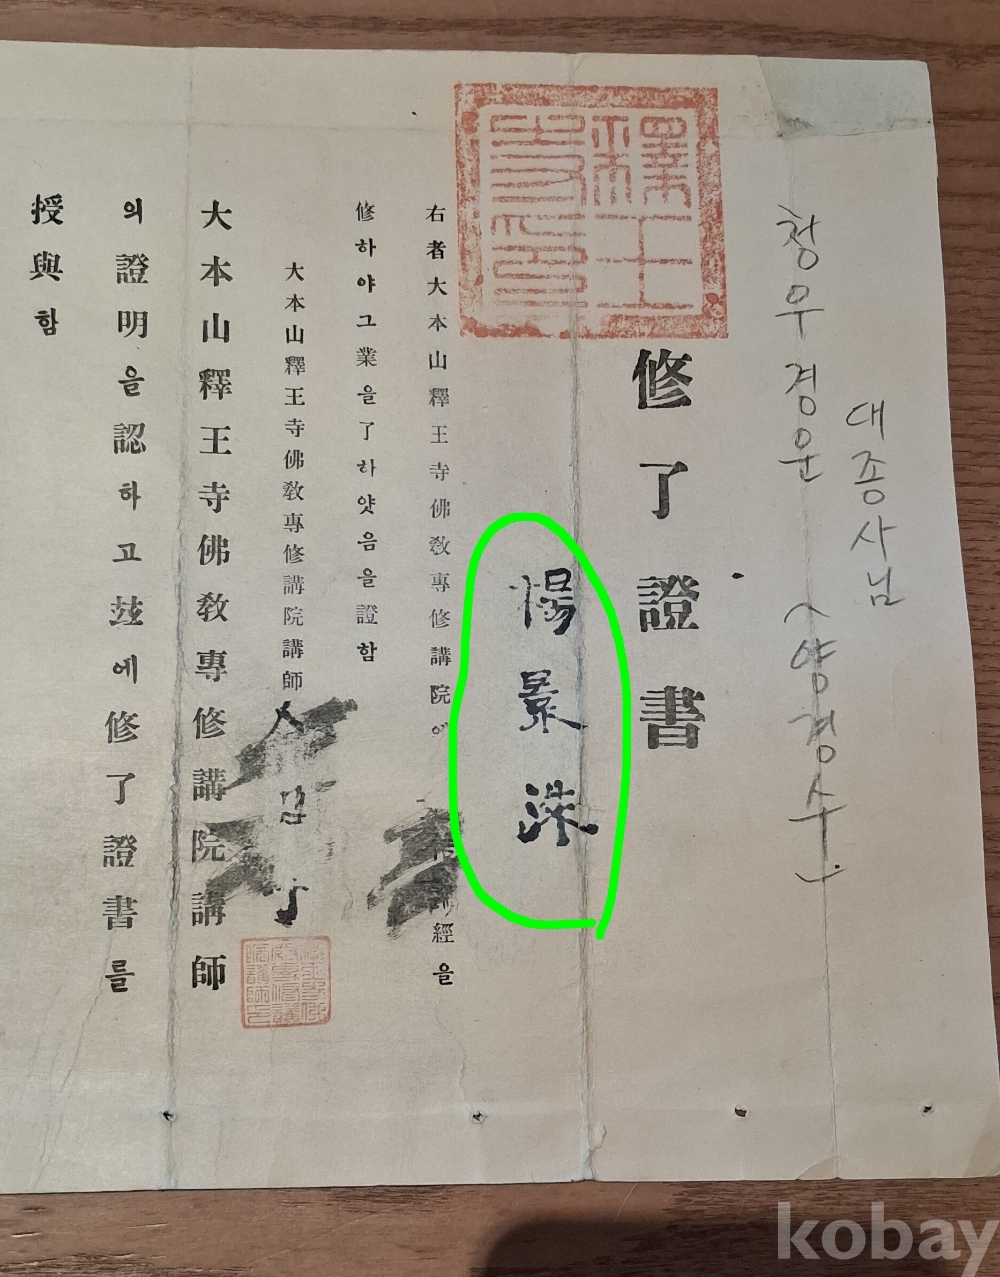 청우경운
대종사님
(양경수)
釋王寺印
修了證書
楊景洙
右者大本山釋王寺佛敎專修講院에
經을
修하야그業을了하얏음을證함
大本山釋王寺佛敎專修講院講師
大本山釋王寺佛敎專修講院講師
의證明을認하고玆에修了證書를
授與함
kobay